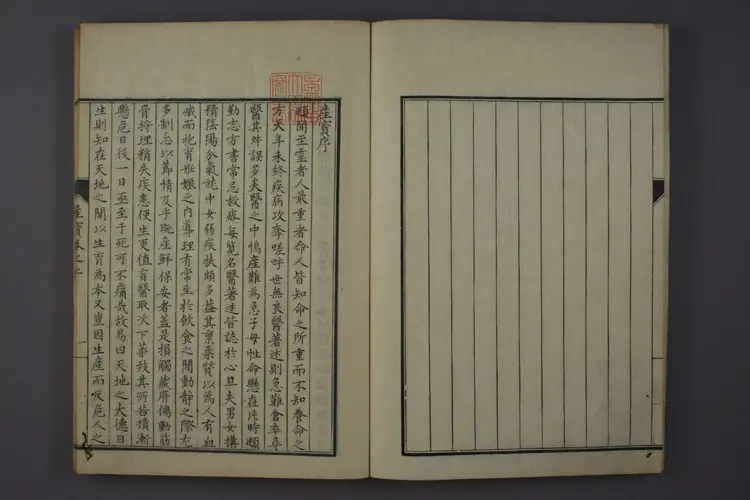 產寶序
頲聞至靈者人最重者命人皆知命之所重而不知養命之
方天年未終疾病攻奪嗟呼世無良醫著述則急難倉卒尋
醫其舛誤多矣醫之中惟產難為急子母性命懸在片時頲
勤志方書常思救療每覽名醫著述皆誌於心且夫男女搆
精陰陽分氣就中女弱疾狀頗多益其稟柔質以為人有血
臧而抱育姙娠之內導理有常至於飲食之間動靜之際尤
多制忌以節情及乎晚產鮮保安者蓋是損觸藏府傷動筋
骨將理稍失疾患便生更值盲醫取次下藥致其所苦積漸
懸危日後一日亟至于死可不痛哉故易曰天地之大德曰
生則知在天地之間以生育為本又豈因生產而反危人之
產寶卷之